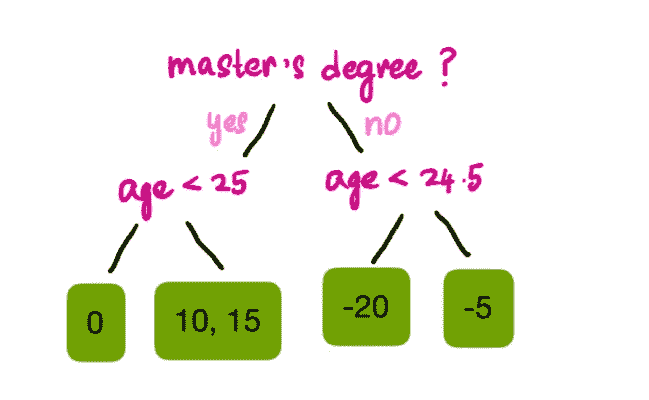 master's degree ?
yes no
age < 25 age < 24.5
0 10, 15 -20 -5